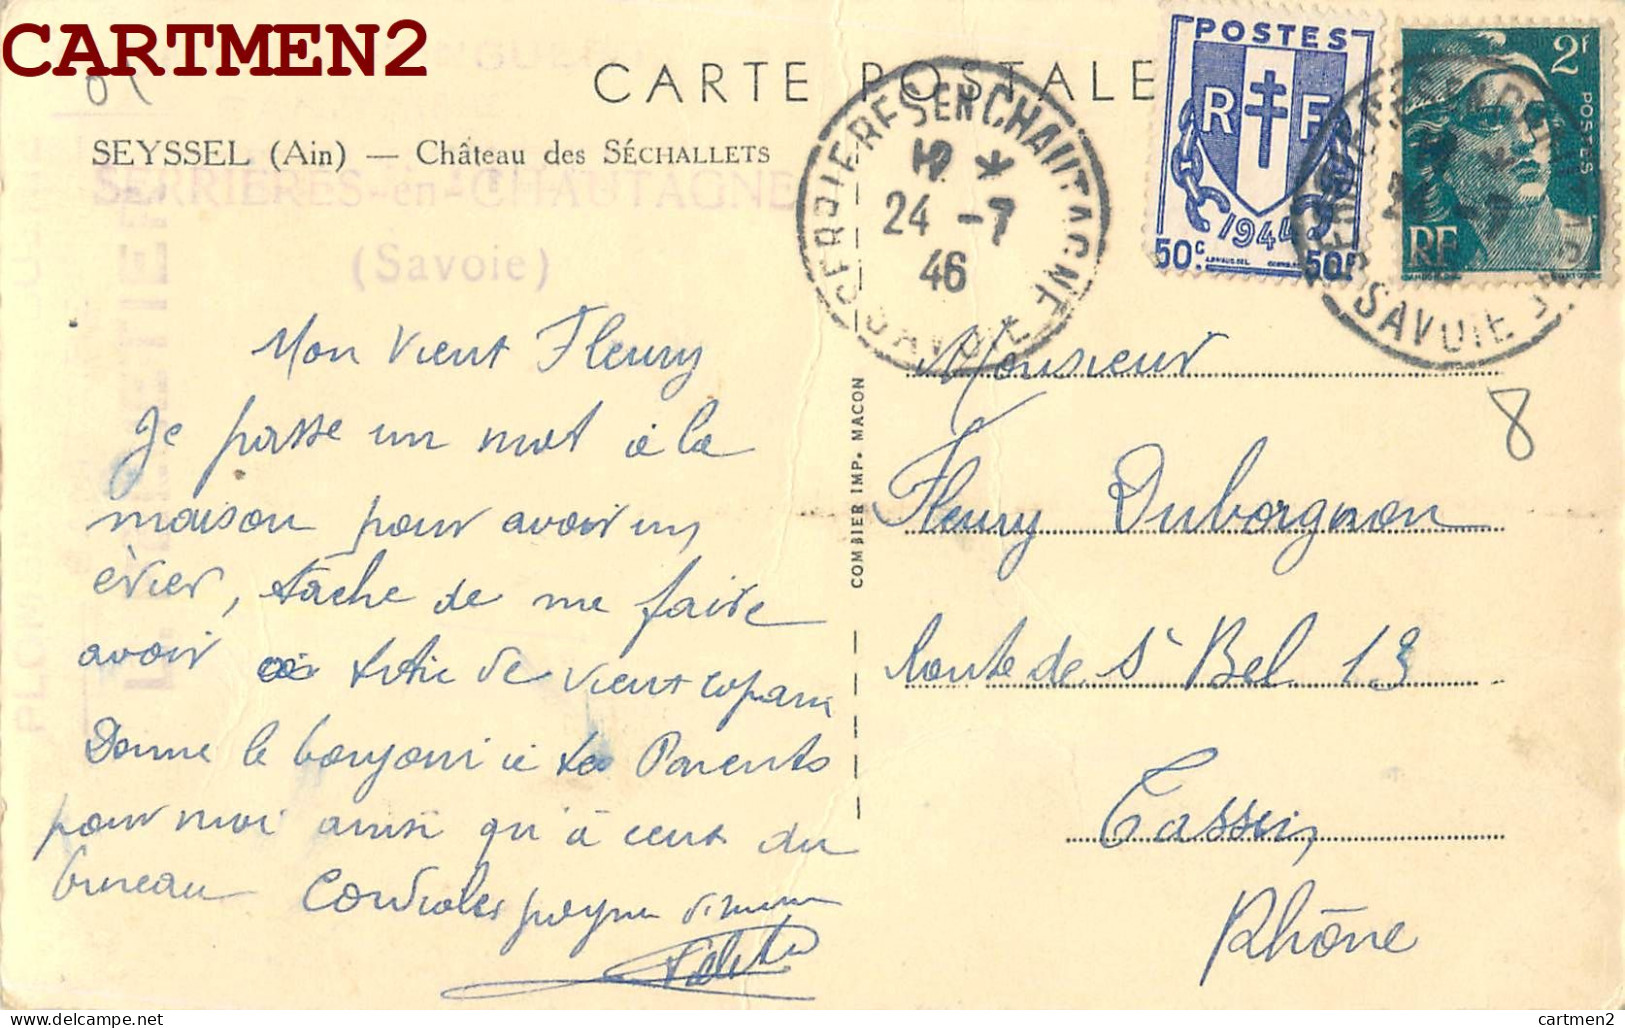 CARTMEN2
CARTE POSTALE
SEYSSEL (Ain) — Château des SÉCHALLETS
SERRIERES-en-CHAUTAGNE
(Savoie)
SERRIERES EN CHAUTAGNE
SAVOIE
24 -7
46
POSTES
RF
1944
50c 50c
2f
POSTES
RF
SAVOIE
COMBIER IMP. MACON
8
Mon vient Fleury
Je passe un mot à la
maison pour avoir un
èrier, tache de me faire
avoir de vient copain
Donne le bonjour à tes Parents
pour moi ainsi qu'à ceut du
bureau Cordiales poignée de main
Monsieur
Fleury Duborgnon
Route de St Bel 13
Tassin
Rhône
cartmen2.delcampe.net
cartmen2